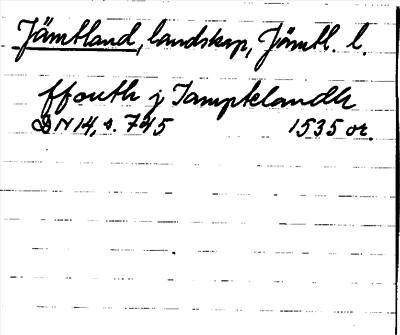 Jämtland, landskap, Jämtl. l.
ffouth j Jamptelandh
DN 14, s. 745 1535 or.